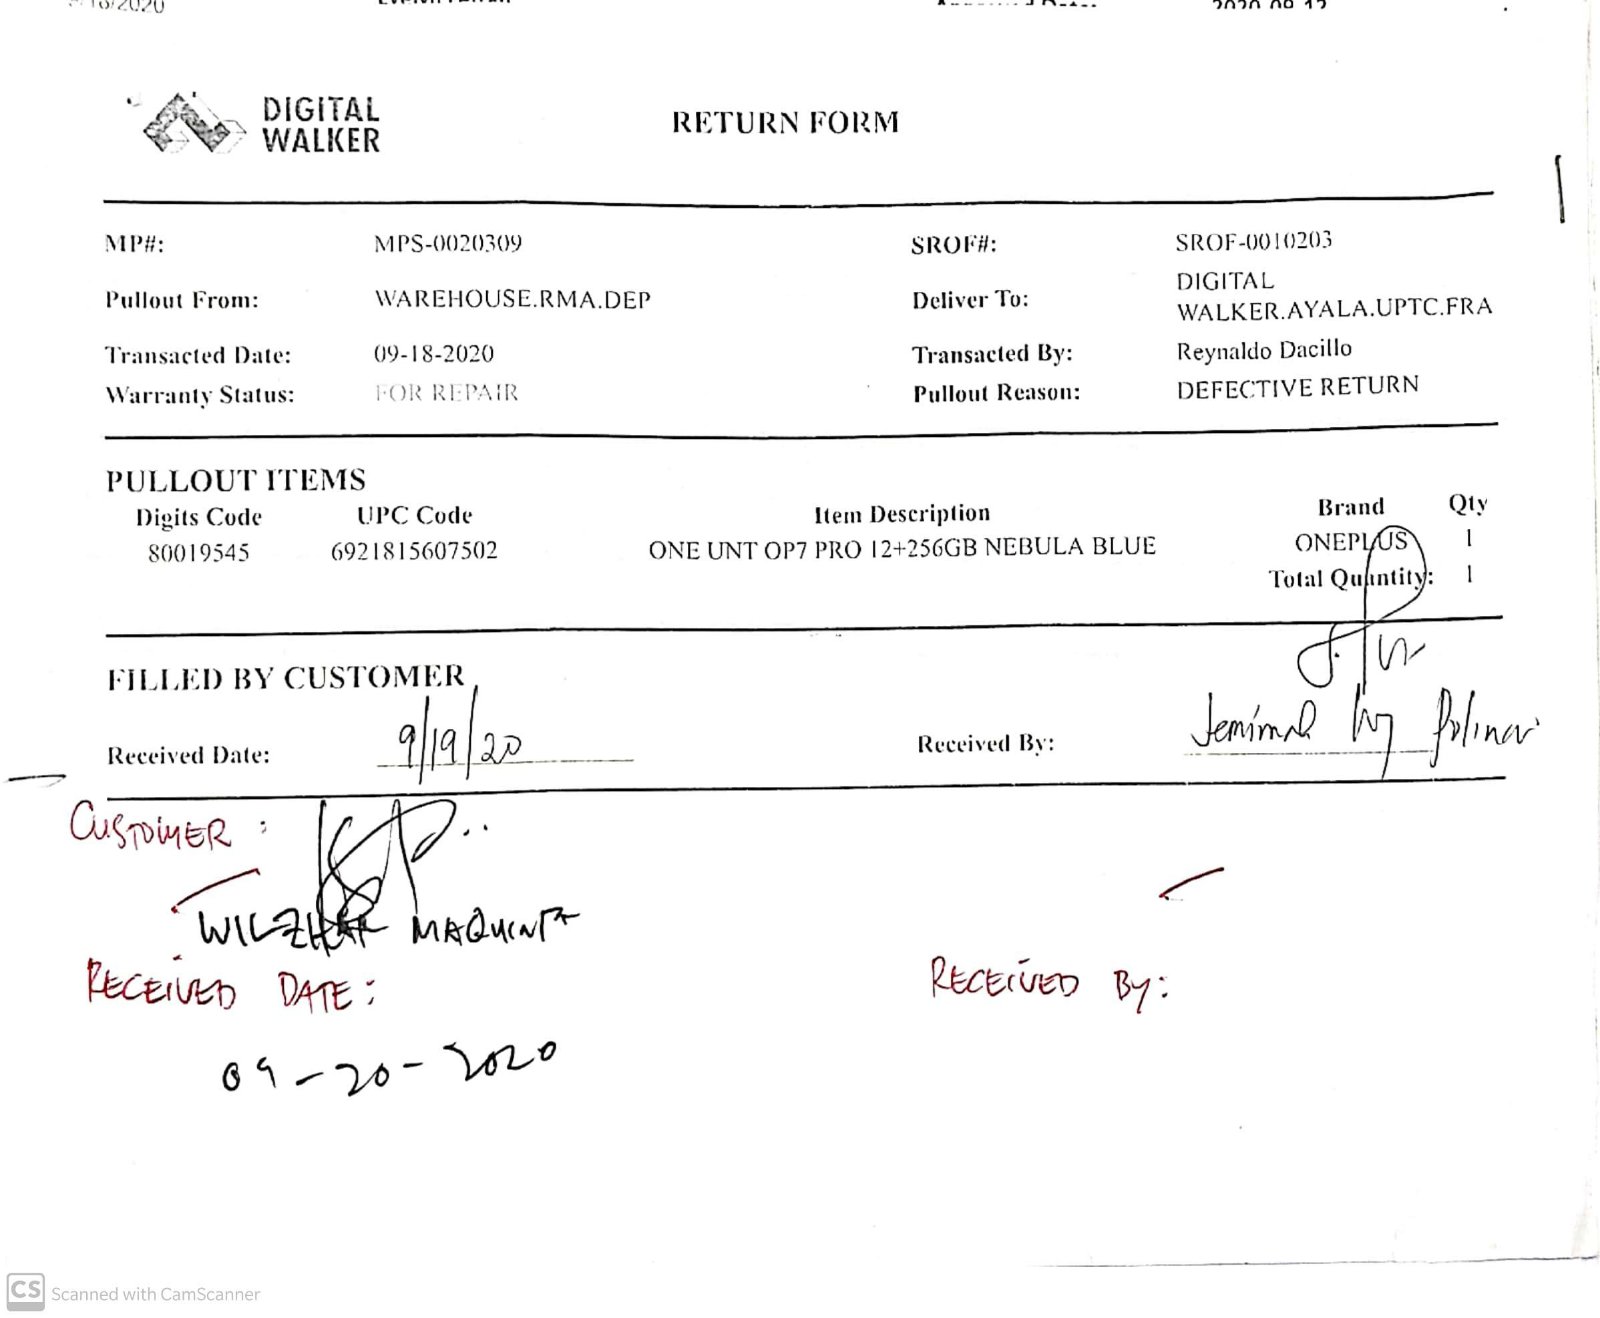 DIGITAL
WALKER
RETURN FORM
MP#: MPS-0020309 SROF#: SROF-0010203
Pullout From: WAREHOUSE.RMA.DEP Deliver To: DIGITAL
WALKER.AYALA.UPTC.FRA
Transacted Date: 09-18-2020 Transacted By: Reynaldo Dacillo
Warranty Status: FOR REPAIR Pullout Reason: DEFECTIVE RETURN
PULLOUT ITEMS
Digits Code UPC Code Item Description Brand Qty
80019545 6921815607502 ONE UNT OP7 PRO 12+256GB NEBULA BLUE ONEPLUS 1
Total Quantity: 1
FILLED BY CUSTOMER
Received Date: 9/19/20 Received By:
CUSTOMER :
RECEIVED DATE: RECEIVED BY:
09-20-2020
CS Scanned with CamScanner